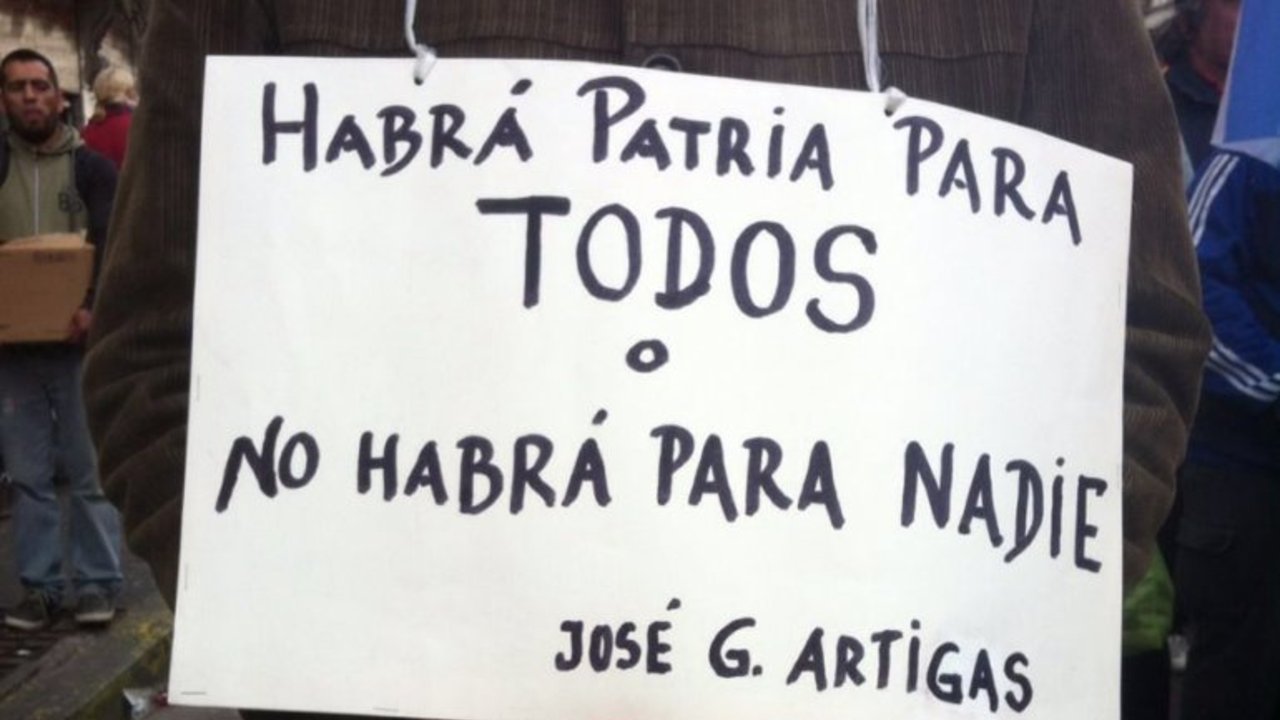 HABRÁ PATRIA PARA
TODOS
o
NO HABRÁ PARA NADIE
JOSÉ G. ARTIGAS